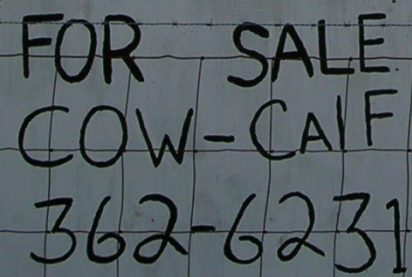 FOR SALE
COW-CAlF
362-6231